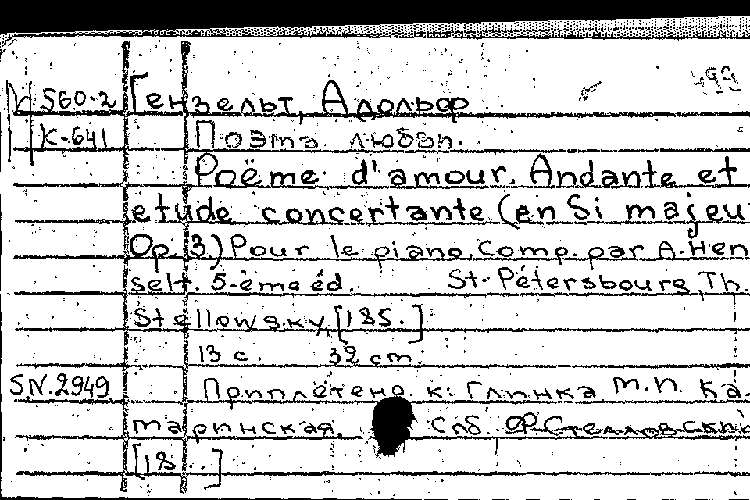 499
S60-2 Гензельт, Адольф
К-641 Поэма любви.
Poëme d'amour. Andante et
etude concertante (en Si majeu
Op. 3) Pour le piano. Comp. par A. Hen
selt. 5-ème éd. St-Pétersbourg, Th.
Stellowsky, [185.]
13 с. 32 cm.
S.N.2949 Приплетено к: Глинка М.И. Ка
маринская. Спб. Ф. Стелловский
[18 ..]